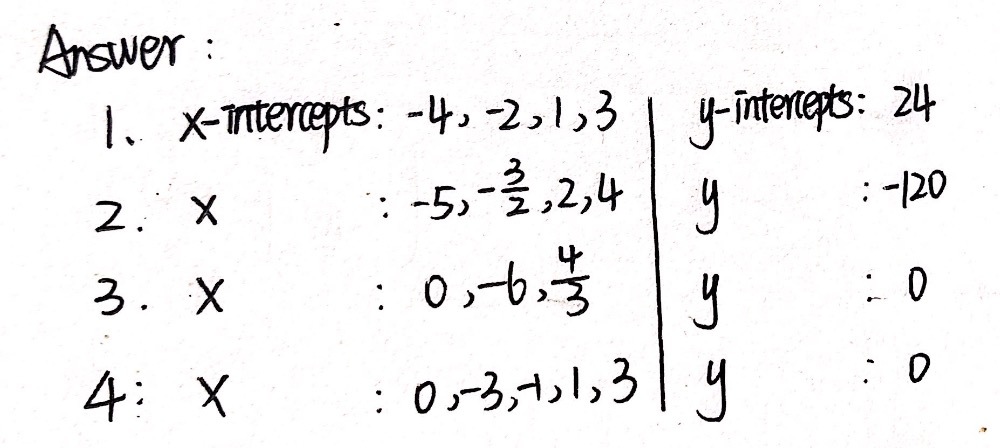 Answer :
1. x-intercepts: -4, -2, 1, 3 | y-intercepts: 24
2. x : -5, -3/2, 2, 4 | y : -120
3. x : 0, -6, 4/3 | y : 0
4: x : 0, -3, -1, 1, 3 | y : 0